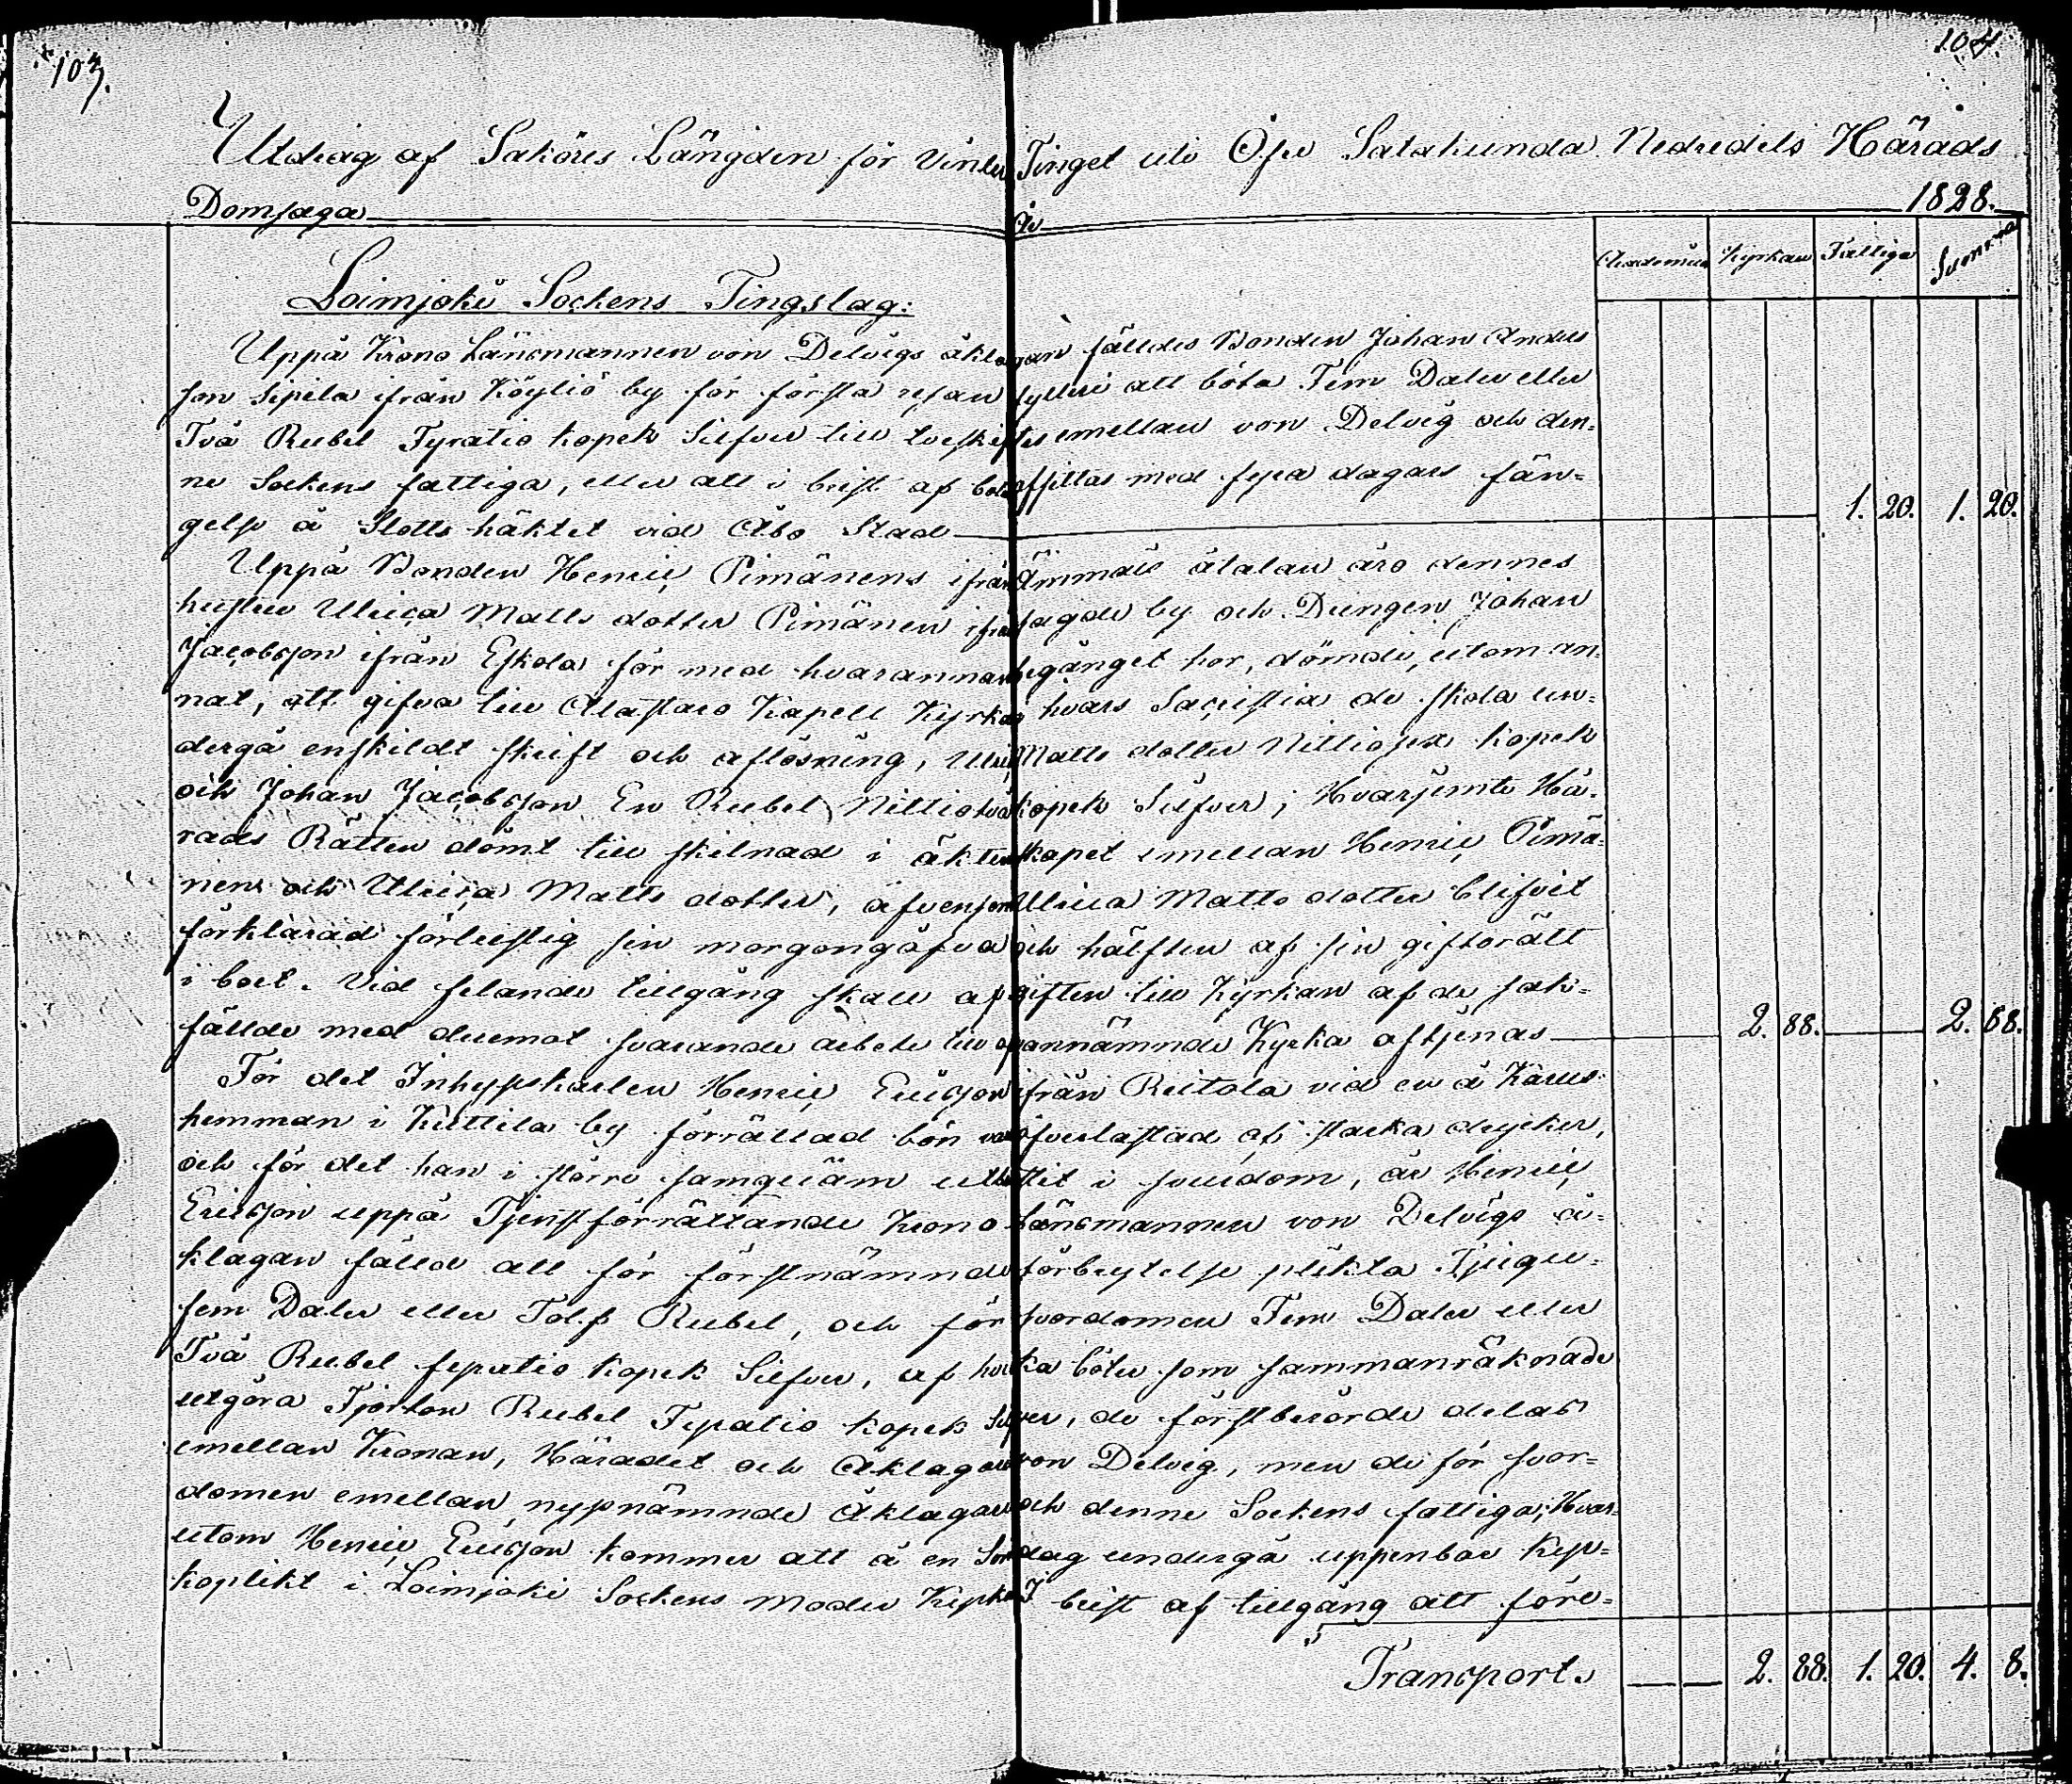 103.
104.
Utdrag af Saköres Längden för Vinter Tinget uti Öfre Satakunda Nedredels Härads
Domsaga År 1828.
Academien Kyrkan Fattiga Summa
Loimjoki Sockens Tingslag:
Uppå Krono Länsmannen von Delvigs åklagan fälldes Bonden Johan Anders
son Sipila ifrån Köyliö by för första resan fylleri att böta Fem Daler eller
Två Rubel Fyratio kopek Silfver till tveskiftes emellan von Delvig och den-
ne Sockens fattiga, eller att i brist af böter afsittas med fyra dagars fän-
gelse å Slotts häktet vid Åbo Stad 1. 20. 1. 20.
Uppå Bonden Henric Pimänens ifrån Ämmäis åtalan äro dennes
hustru Ulrica Matts dotter Pimänen ifrån sagde by och Drengen Johan
Jacobsson ifrån Eskola för med hvarannan begånget hor, dömde, utom an-
nat, att gifva till Alastaro Kapell Kyrka, i hvars Sacristia de skola un-
dergå enskildt skrift och aflösning, Ulrica Matts dotter Nittiosex kopek
och Johan Jacobsson En Rubel Nittiotvå kopek Silfver; Hvarjemte Hä-
rads Rätten dömt till skilnad i äktenskapet emellan Henric Pimä-
nen och Ulrica Matts dotter, äfvensom Ulrica Matts dotter blifvit
förklarad förlustig sin morgongåfva och hälften af sin giftorätt
i boet. Vid felande tillgång skall afgiften till Kyrkan af de sak-
fällde med deremot svarande arbete till ofvannämnde Kyrka aftjenas 2. 88. 2. 88.
För det Inhysskarlen Henric Ericsson ifrån Reitola vid en å Karus
hemman i Kuttila by förrättad bön varit öfverlastad af starka drycker,
och för det han i större samqväm utbrustit i svordom, är Henric
Ericsson uppå Tjenstförrättande Krono Länsmannen von Delvigs å-
klagan fälld att för förstnämnde förbrytelse plikta Tjugu-
fem Daler eller Tolf Rubel, och för svordomen Fem Daler eller
Två Rubel fyratio kopek Silfver, af hvilka böter som sammanräknade
utgöra Fjorton Rubel Fyratio kopek Silfver, de förstberörde delas
emellan Kronan, Häradet och Åklagaren von Delvig, men de för svor-
domen emellan nyssnämnde Åklagare och denne Sockens fattiga; Hvar-
utom Henric Ericsson kommer att å en Söndag undergå uppenbar Kyr-
koplikt i Loimjoki Sockens Moder Kyrka. I brist af tillgång att före-
Transport. 2. 88. 1. 20. 4. 8.